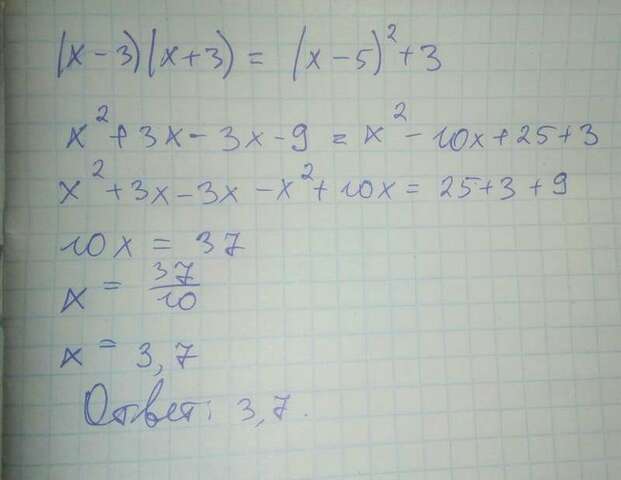 (x-3)(x+3) = (x-5)²+3
x²+3x-3x-9 = x²-10x+25+3
x²+3x-3x-x²+10x = 25+3+9
10x = 37
x = 37/10
x = 3,7
Ответ: 3,7.